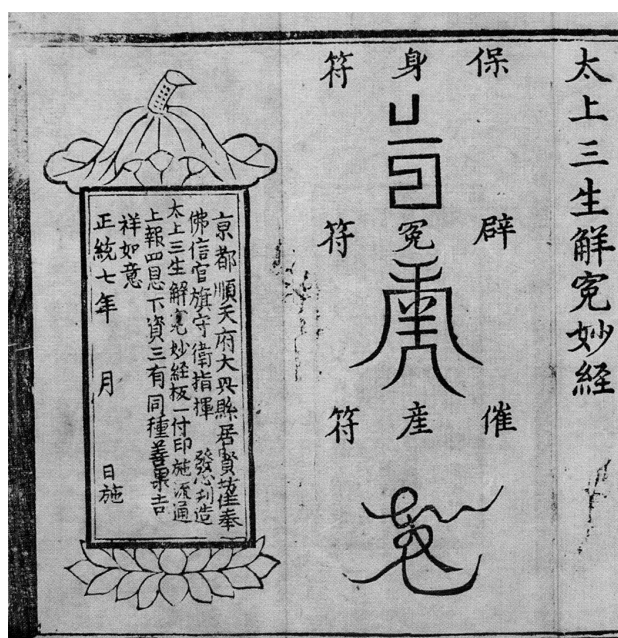 太上三生解冤妙経
保身符
辟冤符
催産符
京都順天府大興縣居賢坊住奉
佛信官旗守衛指揮 發心刋造
太上三生解冤妙経板一付印施流通
上報四恩下資三有同種善果吉
祥如意
正統七年 月 日施